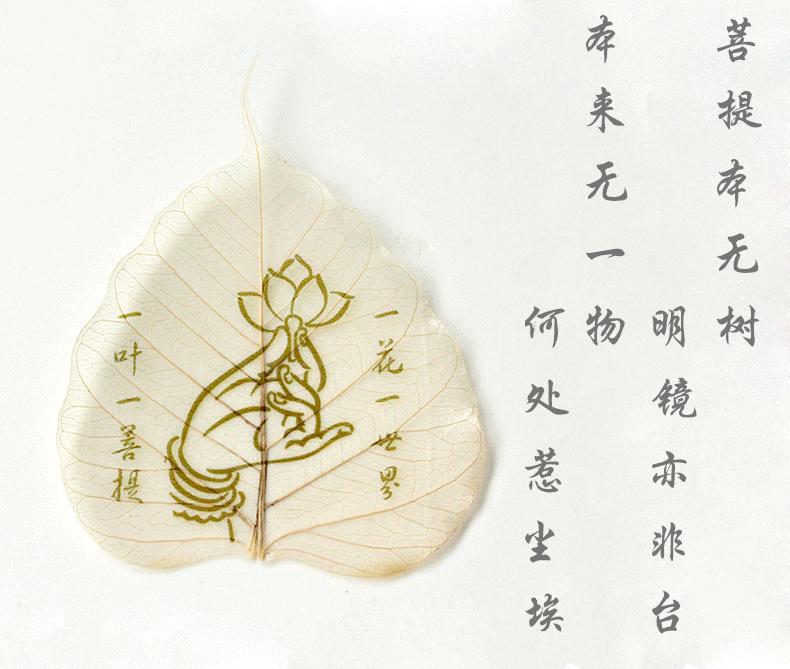 菩提本无树
明镜亦非台
本来无一物
何处惹尘埃
一花一世界
一叶一菩提